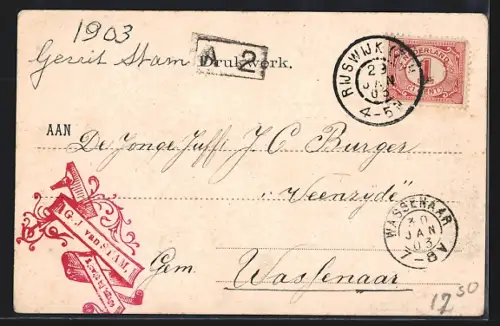 1903
Gerrit Stam
A 2
Drukwerk.
RIJSWIJK
29
JAN
03
4-5
NEDERLAND
1
AAN
De Jonge Juffr. J. C. Burger
"Veenzyde"
WASSENAAR
30
JAN
03
7-8V
G. J. VAN STAM.
Gem. Wassenaar
12 50